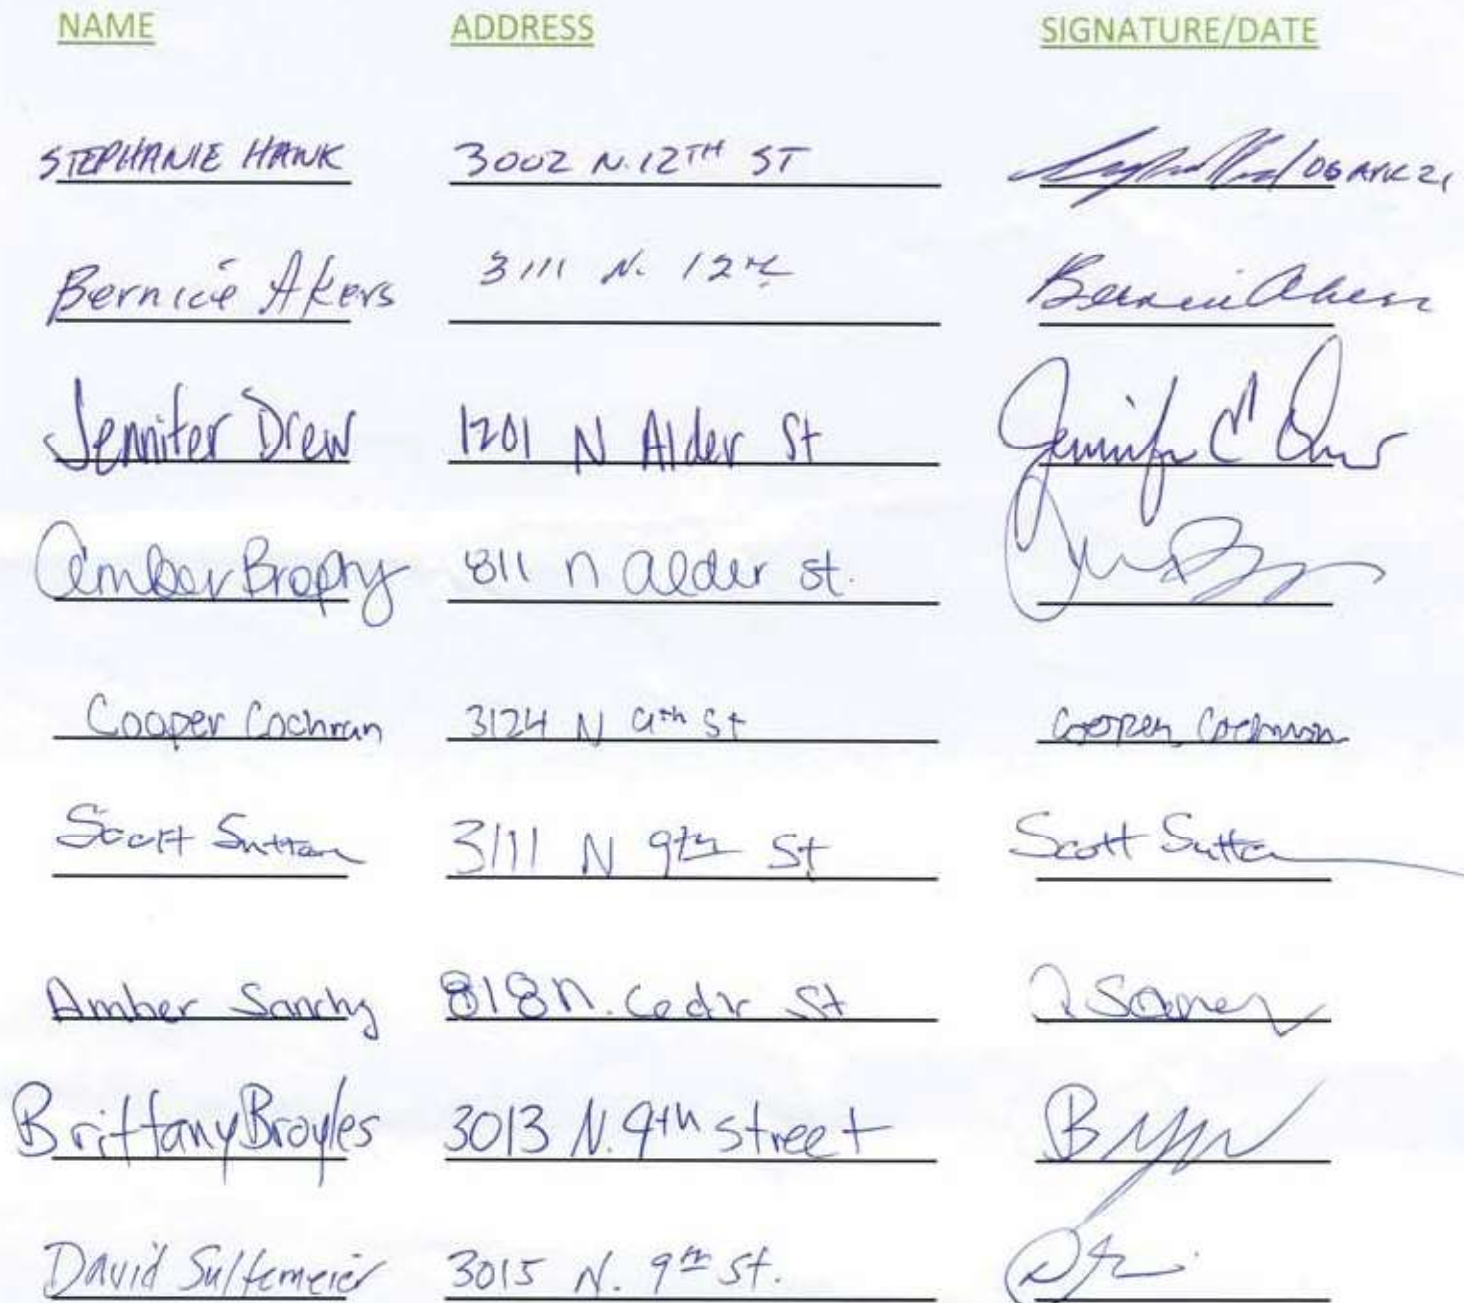 NAME ADDRESS SIGNATURE/DATE
STEPHANIE HAWK 3002 N. 12TH ST 06 APR 21
Bernice Akers 3111 N. 12th Bernice Akers
Jennifer Drew 1201 N Alder St Jennifer Drew
Amber Brophy 811 n alder st.
Cooper Cochran 3124 N 9th St Cooper Cochran
Scott Sutton 3111 N 9th St Scott Sutton
Amber Sanchz 818 n. Cedr St
Brittany Broyles 3013 N. 9th street
David Sultemeier 3015 N. 9th St.